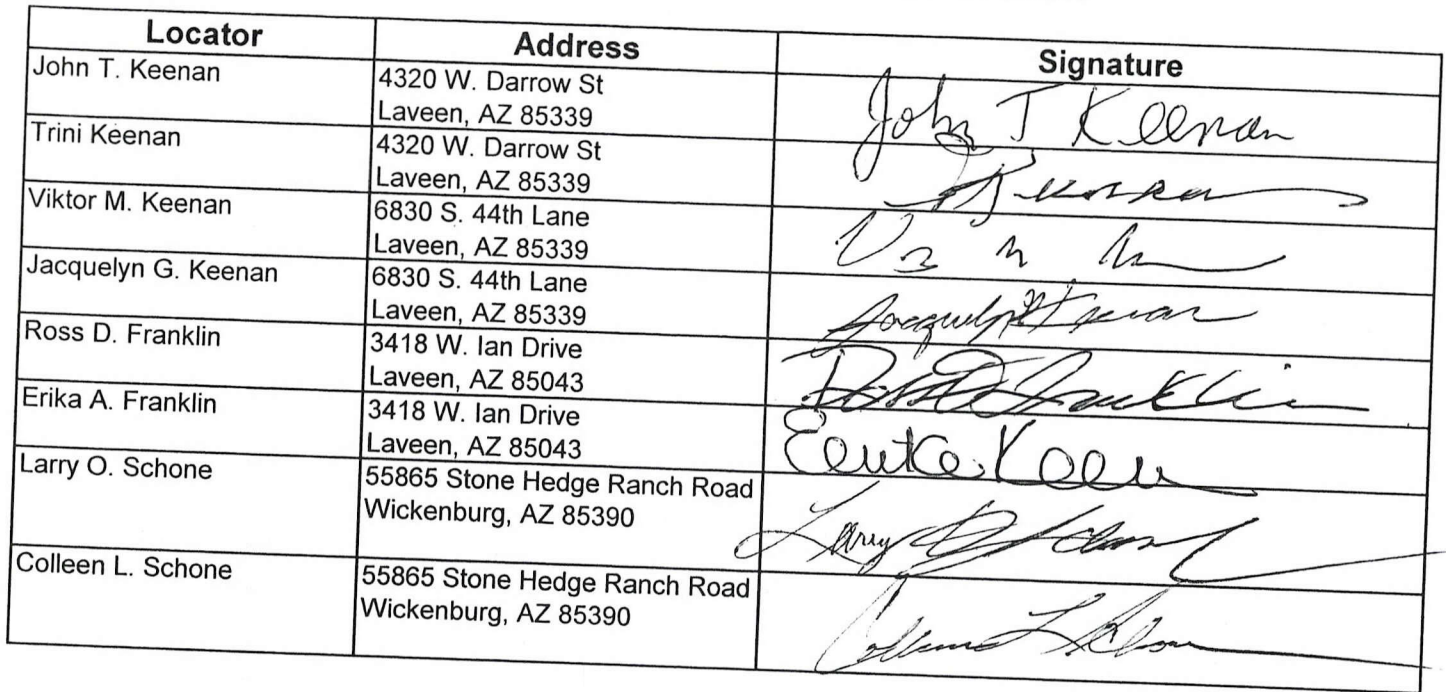 Locator Address Signature
John T. Keenan 4320 W. Darrow St
Laveen, AZ 85339 John T Keenan
Trini Keenan 4320 W. Darrow St
Laveen, AZ 85339
Viktor M. Keenan 6830 S. 44th Lane
Laveen, AZ 85339
Jacquelyn G. Keenan 6830 S. 44th Lane
Laveen, AZ 85339 Jacquelyn G Keenan
Ross D. Franklin 3418 W. Ian Drive
Laveen, AZ 85043 Ross D Franklin
Erika A. Franklin 3418 W. Ian Drive
Laveen, AZ 85043
Larry O. Schone 55865 Stone Hedge Ranch Road
Wickenburg, AZ 85390 Larry O Schone
Colleen L. Schone 55865 Stone Hedge Ranch Road
Wickenburg, AZ 85390 Colleen L Schone